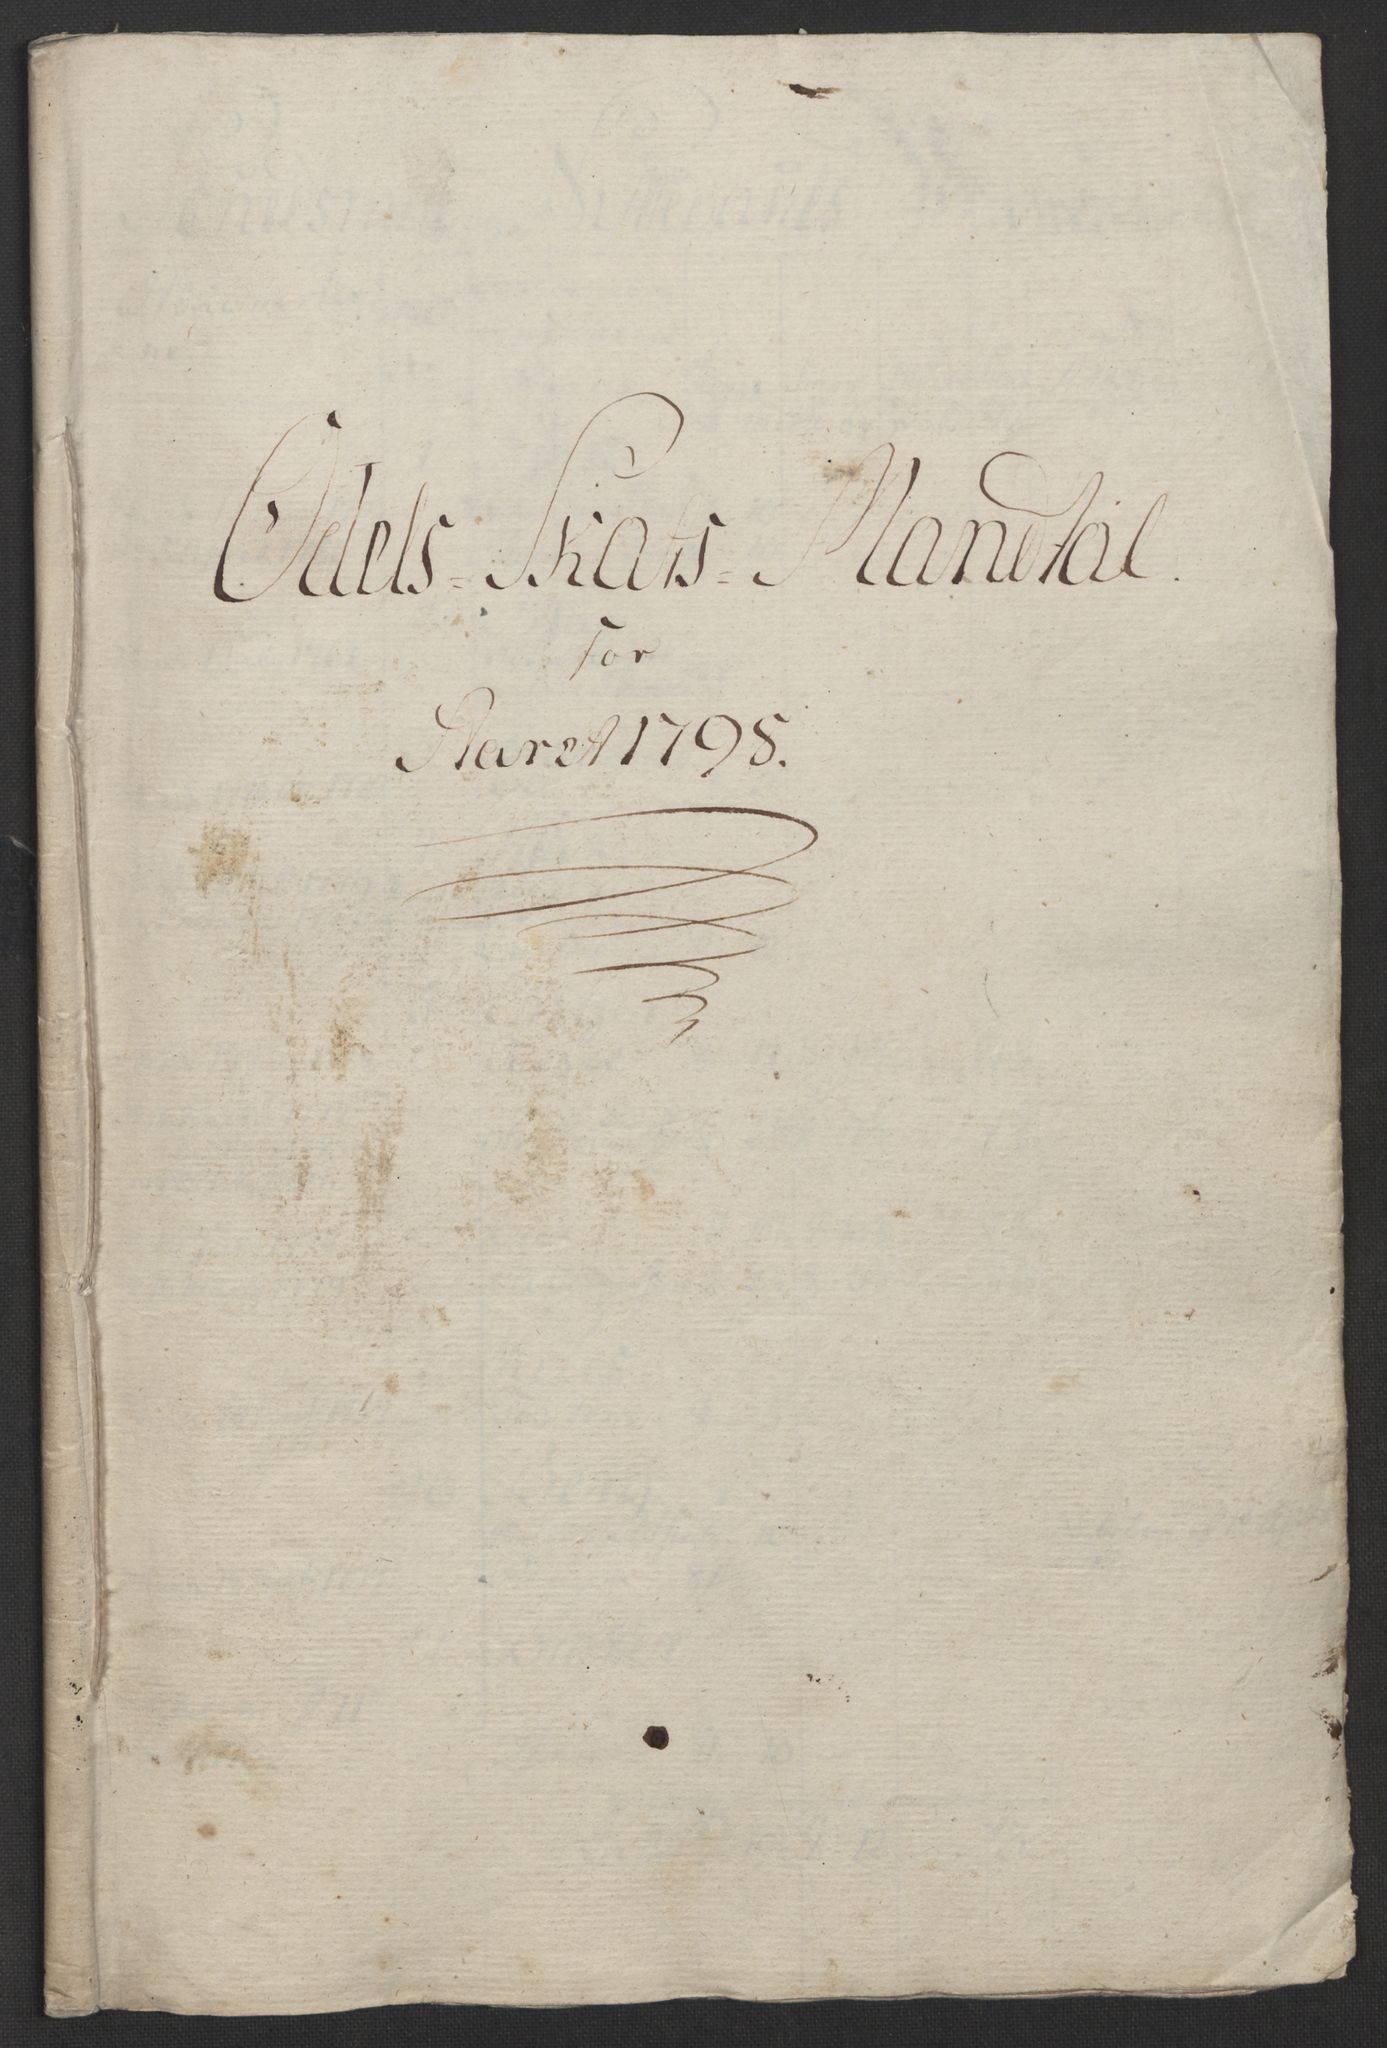 Odels-Skats-Mandtal.
for
Aaret 1798.